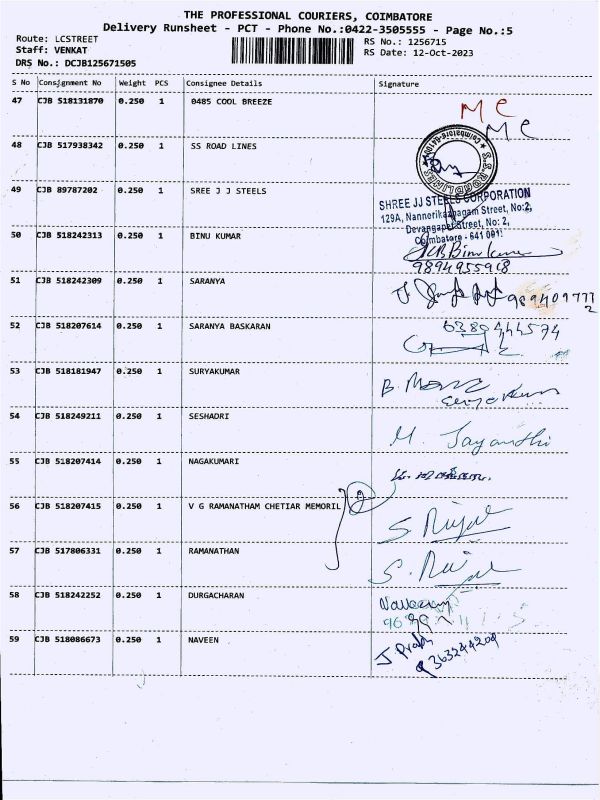 THE PROFESSIONAL COURIERS, COIMBATORE
Delivery Runsheet - PCT - Phone No.:0422-3505555 - Page No.:5
Route: LCSTREET
RS No.: 1256715
Staff: VENKAT
RS Date: 12-Oct-2023
DRS No.: DCJB125671505
S No Consignment No Weight PCS Consignee Details Signature
47 CJB 518131870 0.250 1 0485 COOL BREEZE
Me
Me
48 CJB 517938342 0.250 1 SS ROAD LINES
49 CJB 89787202 0.250 1 SREE J J STEELS
SHREE JJ STEELS CORPORATION
129A, Street, No:2,
Devangapet Street, No: 2,
Coimbatore - 641 001.
50 CJB 518242313 0.250 1 BINU KUMAR
9894955918
51 CJB 518242309 0.250 1 SARANYA
52 CJB 518207614 0.250 1 SARANYA BASKARAN
6380444574
53 CJB 518181947 0.250 1 SURYAKUMAR
54 CJB 518249211 0.250 1 SESHADRI
M. Jayandhi
55 CJB 518207414 0.250 1 NAGAKUMARI
56 CJB 518207415 0.250 1 V G RAMANATHAM CHETIAR MEMORIL
57 CJB 517806331 0.250 1 RAMANATHAN
58 CJB 518242252 0.250 1 DURGACHARAN
59 CJB 518086673 0.250 1 NAVEEN